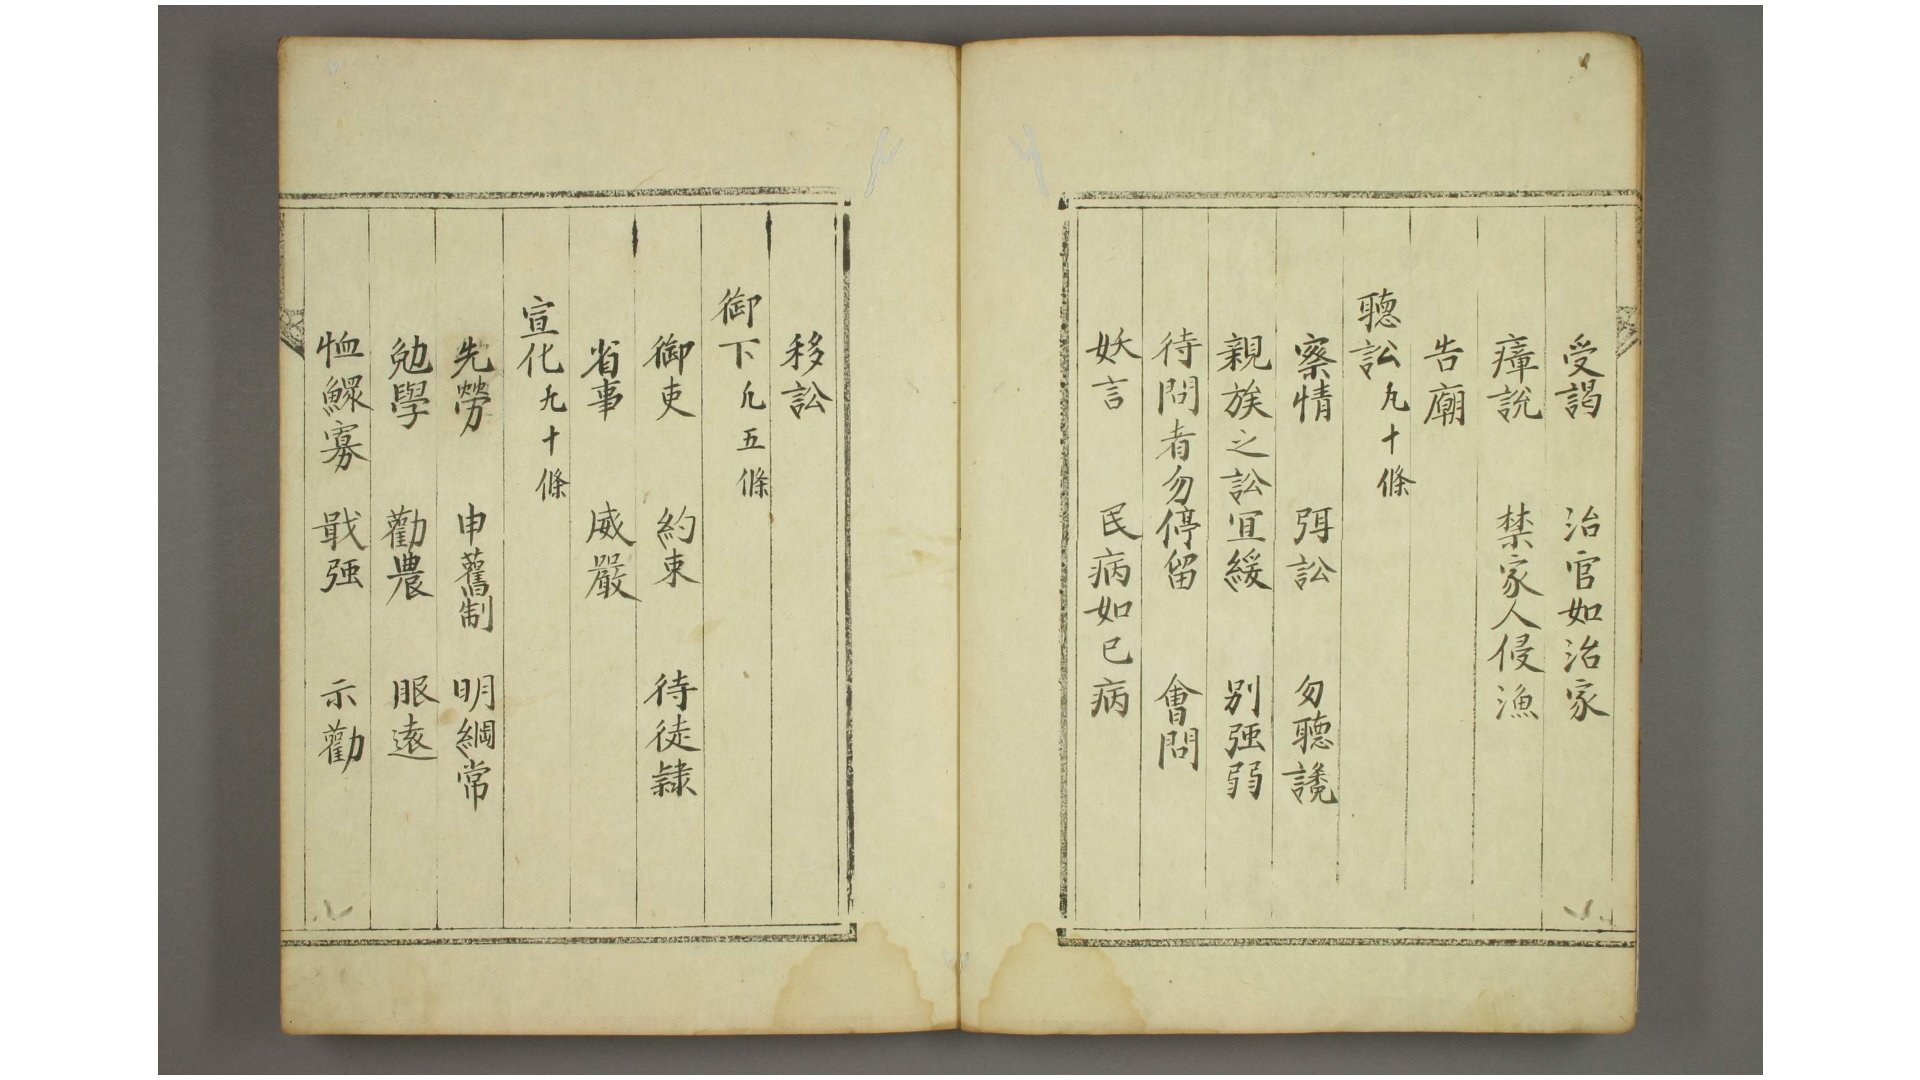 受謁 治官如治家
瘴說 禁家人侵漁
告廟
聽訟凡十條
察情 弭訟 勿聽讒
親族之訟宜緩 别強弱
待問者勿停留 會問
妖言 民病如已病
移訟
御下凡五條
御吏 約束 待徒隷
省事 威嚴
宣化凡十條
先勞 申舊制 明綱常
勉學 勸農 服遠
恤鰥寡 戢强 示勸